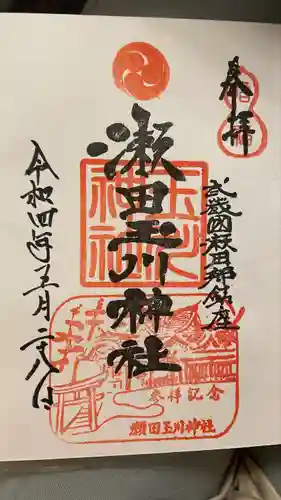 奉拝
武蔵國荏田郷鎮座
瀬田玉川神社
玉川
神社
令和四年五月二八日
参拝記念
瀬田玉川神社